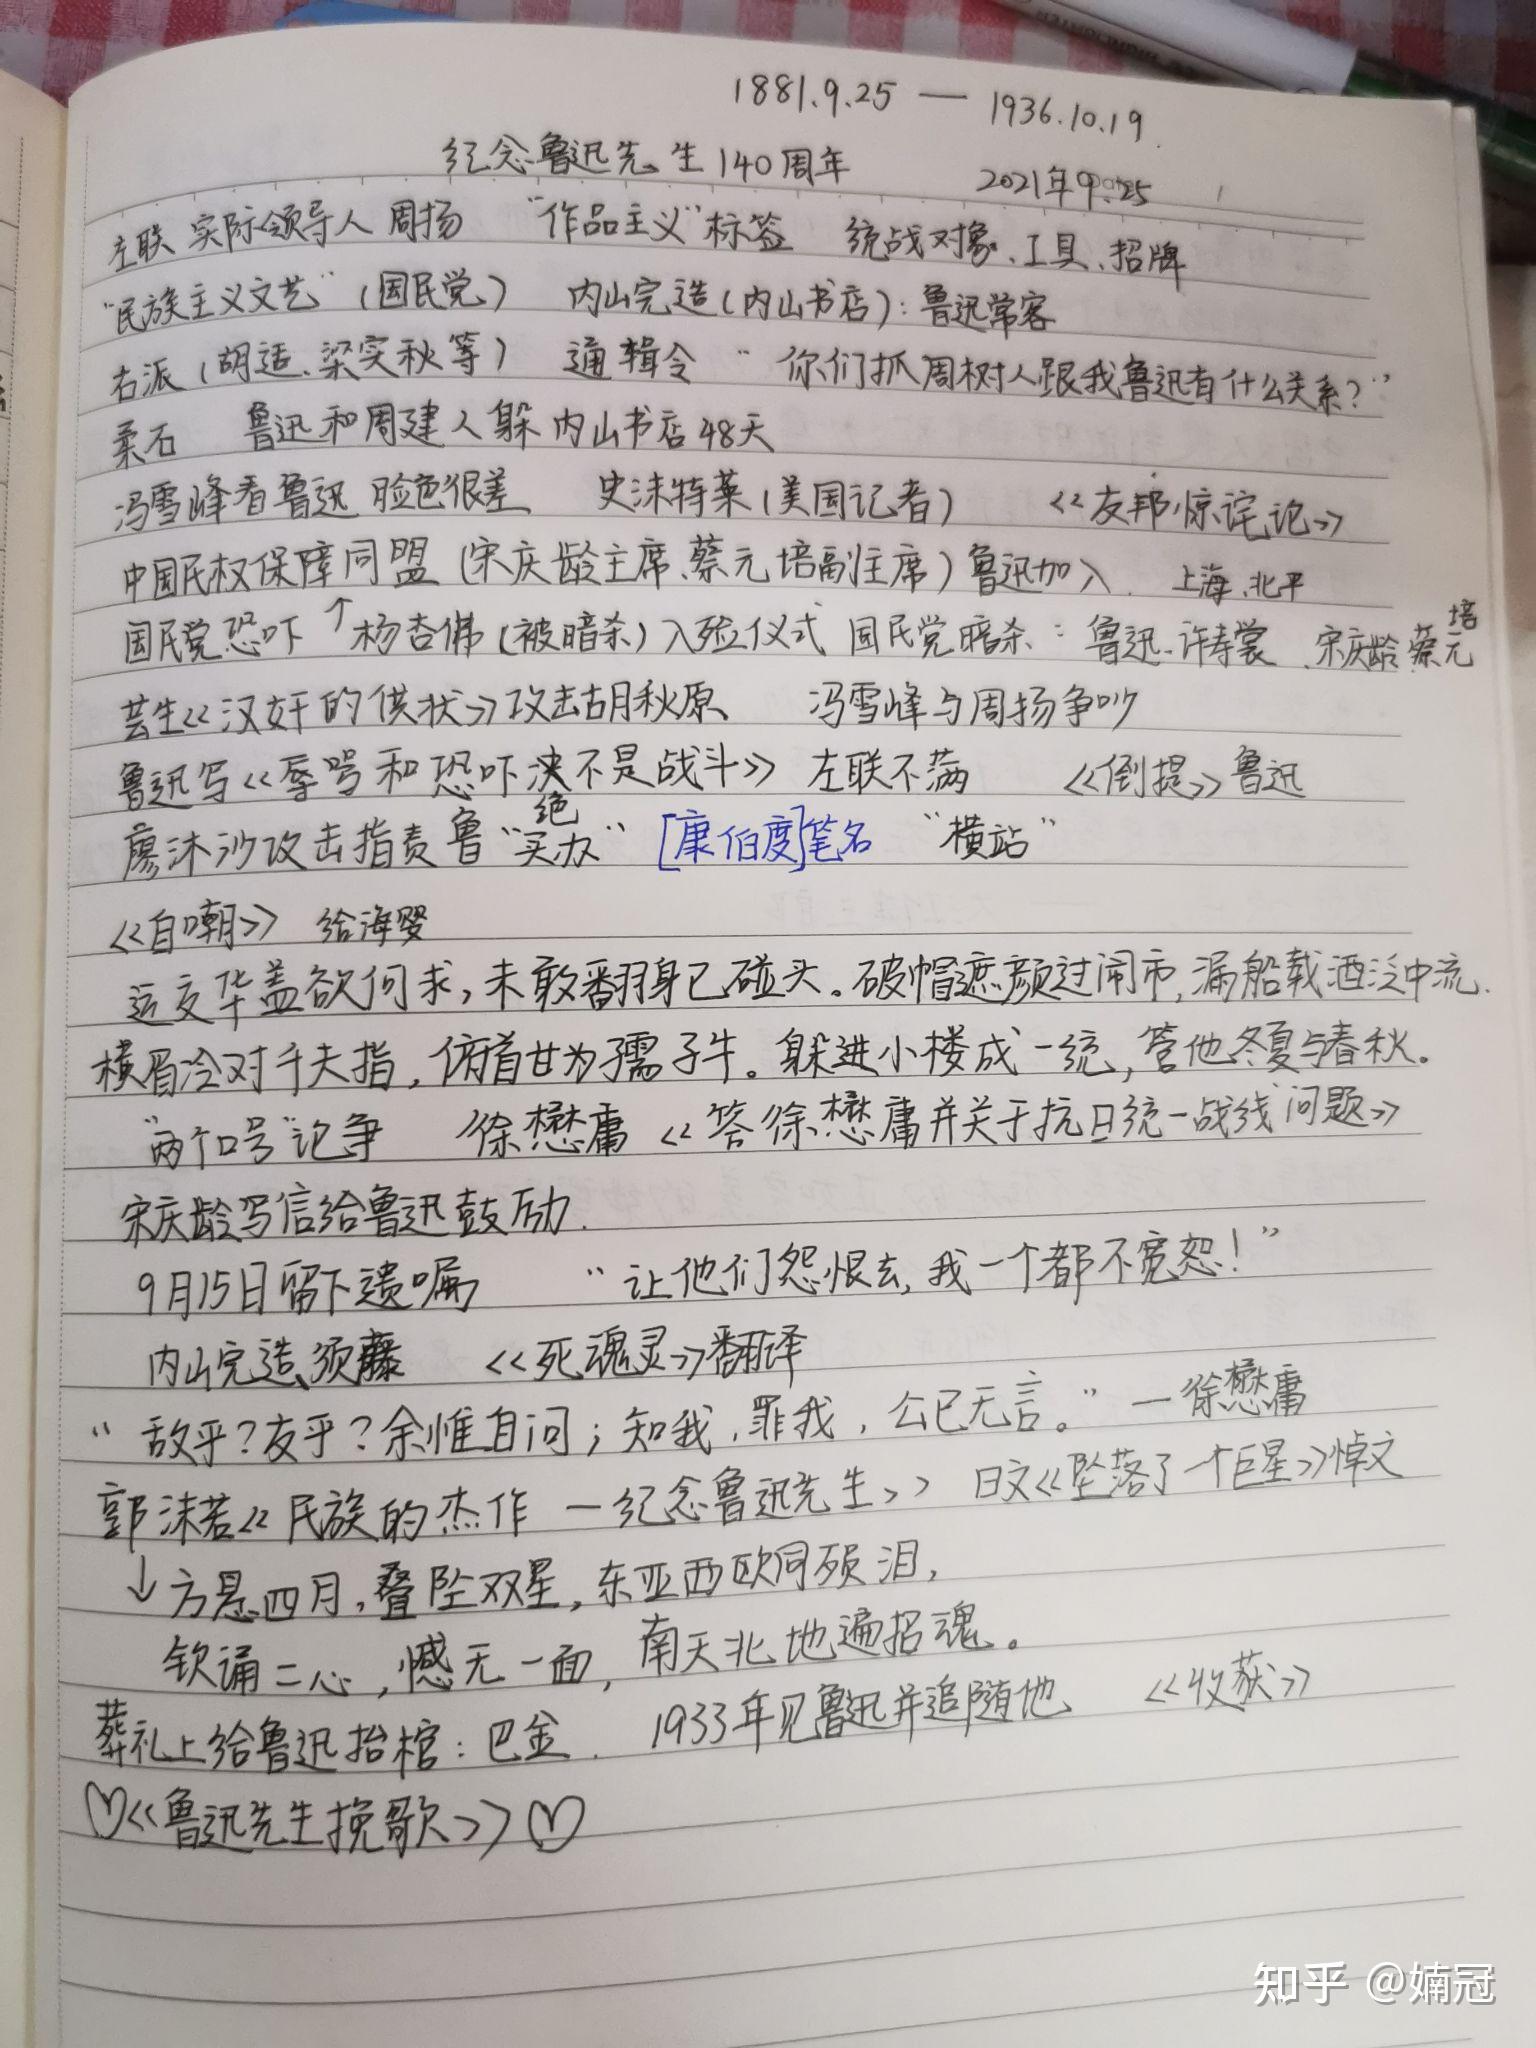 1881.9.25 — 1936.10.19
纪念鲁迅先生140周年 2021年9.25
左联 实际领导人 周扬 “作品主义”标签 统战对象、工具、招牌
“民族主义文艺”(国民党) 内山完造(内山书店):鲁迅常客
右派(胡适、梁实秋等) 通辑令 “你们抓周树人跟我鲁迅有什么关系?”
柔石 鲁迅和周建人躲内山书店48天
冯雪峰看鲁迅脸色很差 史沫特莱(美国记者) 《友邦惊诧论》
中国民权保障同盟(宋庆龄主席、蔡元培副主席)鲁迅加入 上海、北平
国民党恐吓↑杨杏佛(被暗杀)入殓仪式 国民党暗杀:鲁迅、许寿裳、宋庆龄蔡元培
芸生《汉奸的供状》攻击胡秋原、 冯雪峰与周扬争吵
鲁迅写《辱骂和恐吓决不是战斗》 左联不满 《倒提》鲁迅
绝
廖沐沙攻击指责鲁“买办” [康伯度]笔名 “横站”
《自嘲》 给海婴
运交华盖欲何求,未敢翻身已碰头。破帽遮颜过闹市,漏船载酒泛中流.
横眉冷对千夫指,俯首甘为孺子牛。躲进小楼成一统,管他冬夏与春秋。
“两个口号”论争 徐懋庸《答徐懋庸并关于抗日统一战线问题》
宋庆龄写信给鲁迅鼓励.
9月15日留下遗嘱 “让他们怨恨去,我一个都不宽恕!”
内山完造、须藤 《死魂灵》翻译
“敌乎?友乎?余惟自问;知我,罪我,公已无言。”—徐懋庸
郭沫若《民族的杰作—纪念鲁迅先生》 日文《坠落了一个巨星》悼文
↓方悬四月,叠坠双星,东亚西欧同殒泪,
钦诵二心,憾无一面,南天北地遍招魂。
葬礼上给鲁迅抬棺:巴金. 1933年见鲁迅并追随他 《收获》
♡《鲁迅先生挽歌》♡
知乎 @婻冠